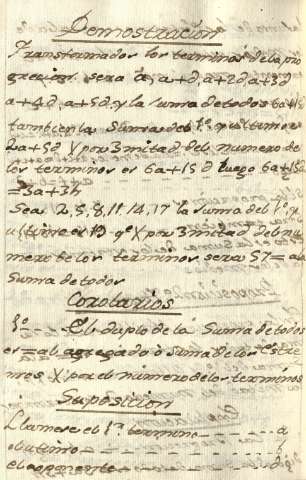 Demostracion
Transformados los terminos de la pro
gresion sera a, a+d, a+2d, a+3d
a+4d, a+5d, y la suma de todos 6a+15d
tambien la Suma del 1º y ultimo es
2a+5d X por 3 mitad del numero de
los terminos es 6a+15d luego 6a+15d
=
Sea 2, 5, 8, 11, 14, 17 la suma del 1º y
ultimo es 19 qº X por 3 mitad del nu
mero de los terminos sera 57 = a la
Suma de todos
Corolarios
1º El duplo de la Suma de todos
es = al agregado ò suma de los estre
mos X por el número de los terminos
Suposicion
Llamese el 1º termino a
el ultimo
el esponente d